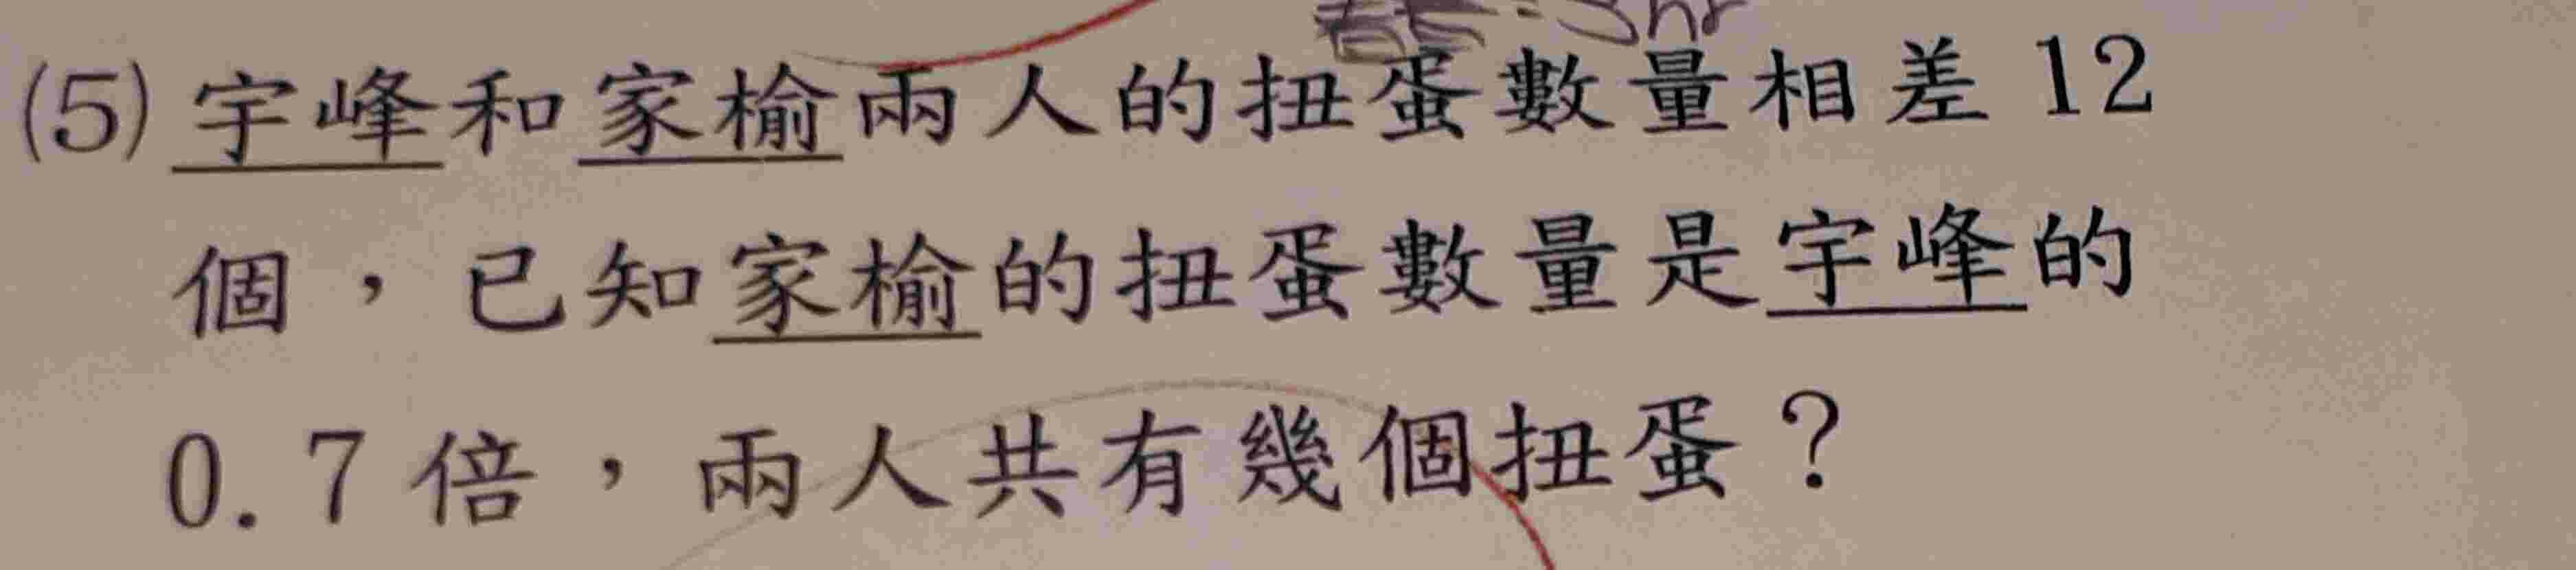 (5)宇峰和家榆兩人的扭蛋數量相差12
個，已知家榆的扭蛋數量是宇峰的
0.7倍，兩人共有幾個扭蛋？